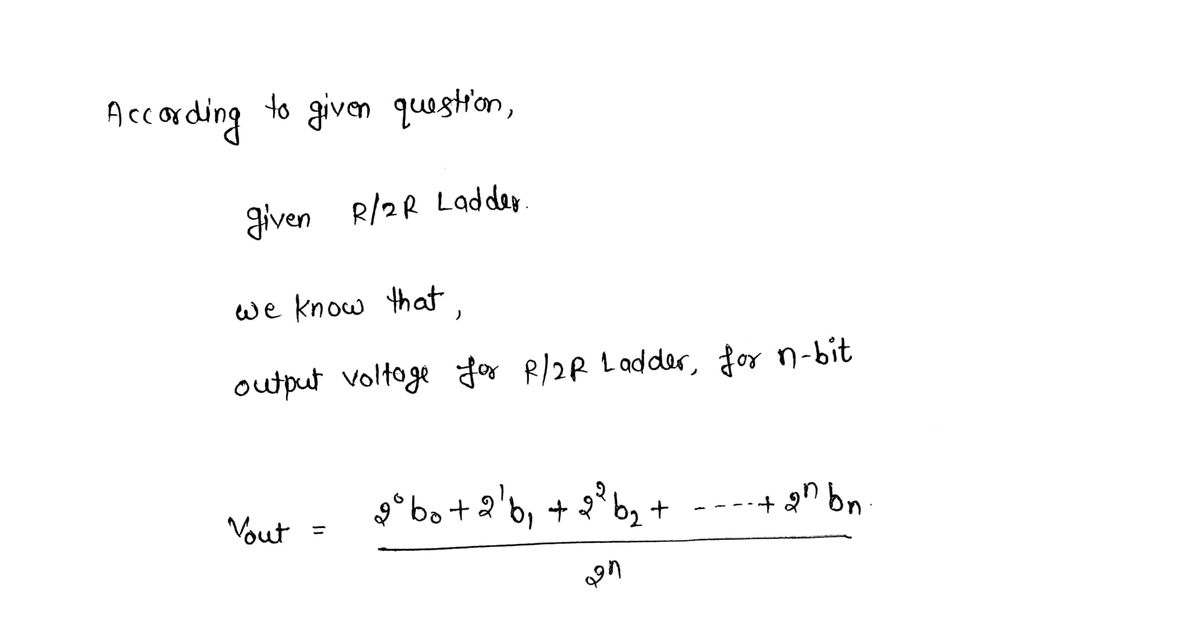 According to given question,
given R/2R Ladder.
we know that,
output voltage for R/2R Ladder, for n-bit
Vout = (2⁰b₀ + 2¹b₁ + 2²b₂ + ----+ 2ⁿbₙ.) / 2ⁿ